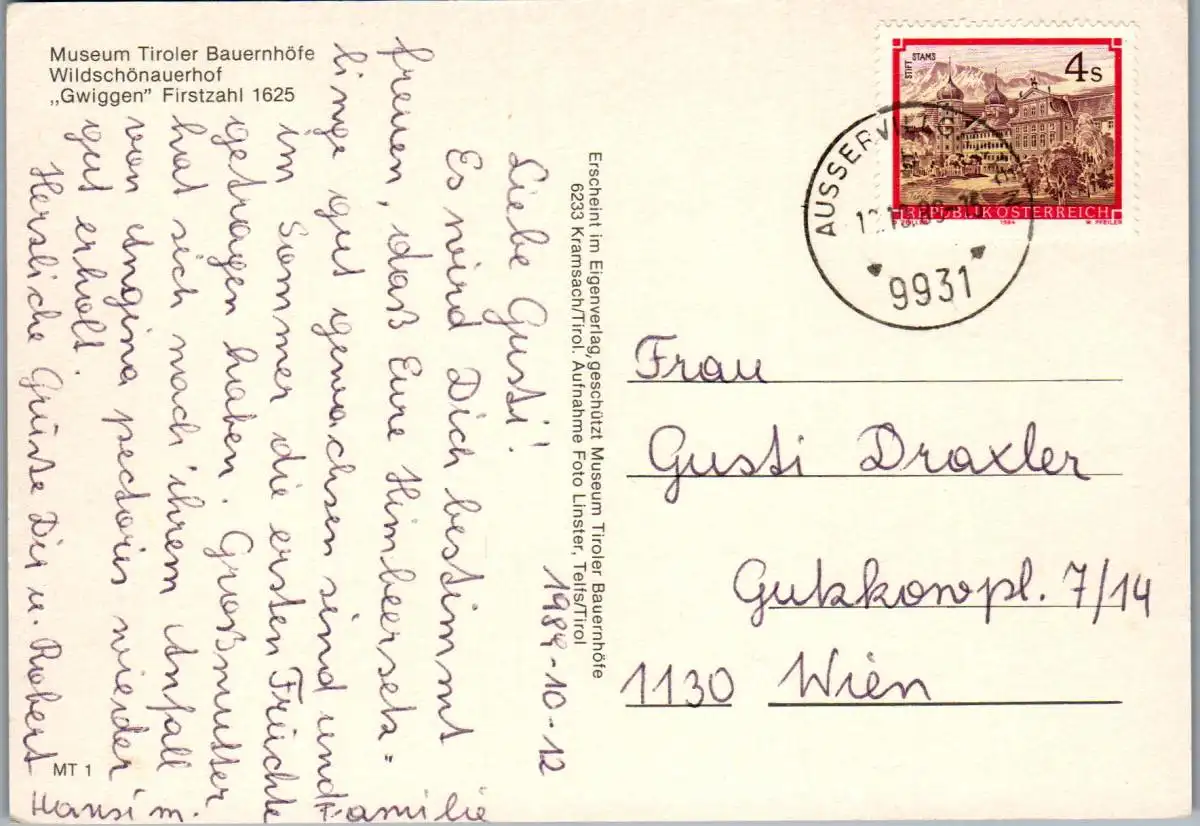 Museum Tiroler Bauernhöfe
Wildschönauerhof
„Gwiggen” Firstzahl 1625
1984-10-12
Liebe Gusti!
Es wird Dich bestimmt
freuen, daß Eure Himbeersetz=
linge gut gewachsen sind und
im Sommer die ersten Früchte
getragen haben. Großmutter
hat sich nach ihrem Anfall
von Angina pectoris wieder
gut erholt.
Herzliche Grüße Dir u. Robert
Hansi m. Familie
MT 1
Erscheint im Eigenverlag, geschützt Museum Tiroler Bauernhöfe
6233 Kramsach/Tirol. Aufnahme Foto Linster, Telfs/Tirol
STIFT STAMS
4s
REPUBLIK ÖSTERREICH
1984
W. PFEILER
9931
Frau
Gusti Draxler
Gutzkowpl. 7/14
1130 Wien